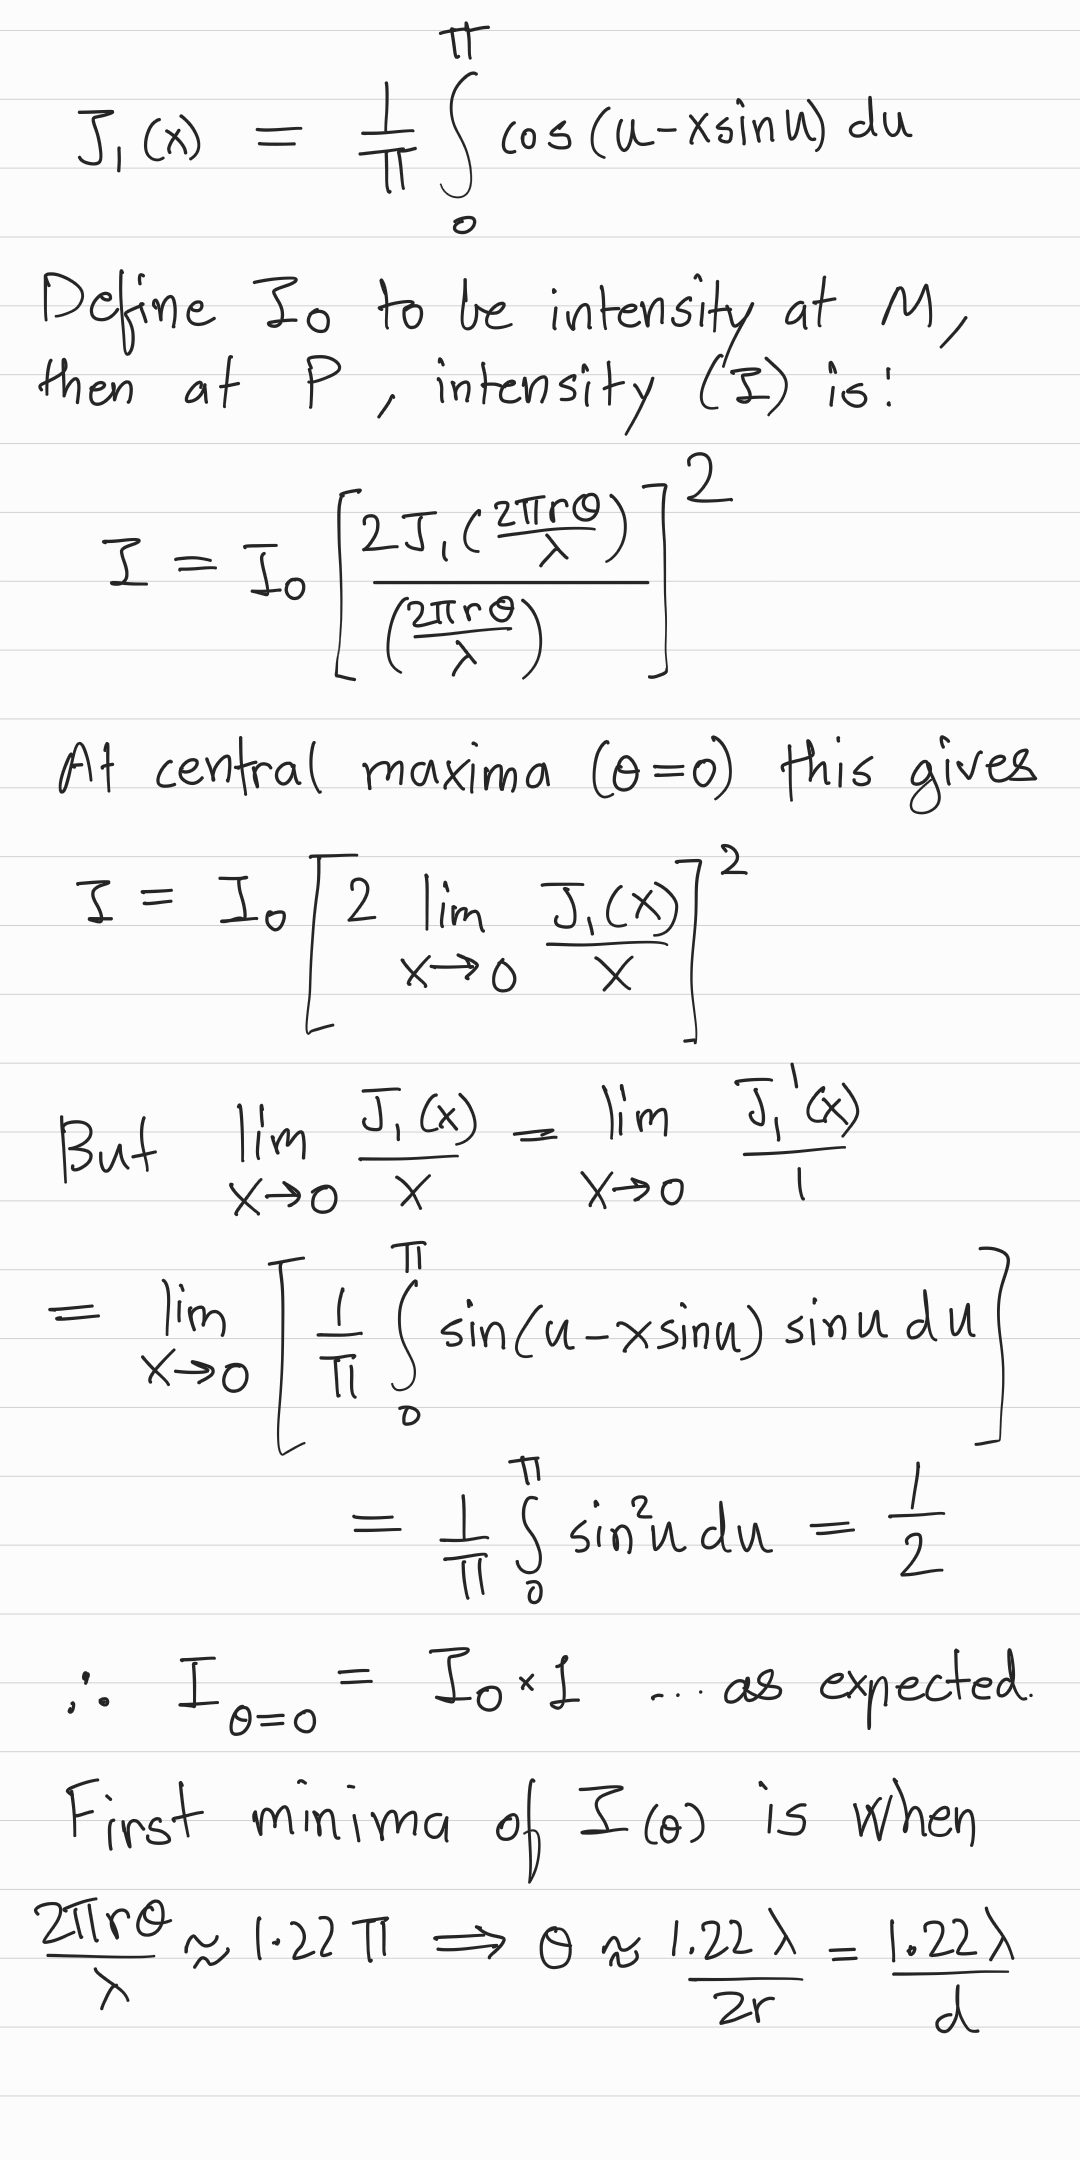 J₁(x) = 1/π ∫₀^π cos(u-xsinu) du
Define I₀ to be intensity at M,
then at P, intensity (I) is:
I = I₀ [2J₁(2πrθ/λ) / (2πrθ/λ)]²
At central maxima (θ=0) this gives
I = I₀ [2 lim_{x→0} J₁(x)/x]²
But lim_{x→0} J₁(x)/x = lim_{x→0} J₁'(x)/1
= lim_{x→0} [1/π ∫₀^π sin(u-xsinu) sinu du]
= 1/π ∫₀^π sin²u du = 1/2
∴ I_{θ=0} = I₀ × 1 ... as expected.
First minima of I(θ) is when
2πrθ/λ ≈ 1.22π ⟹ θ ≈ 1.22λ/2r = 1.22λ/d